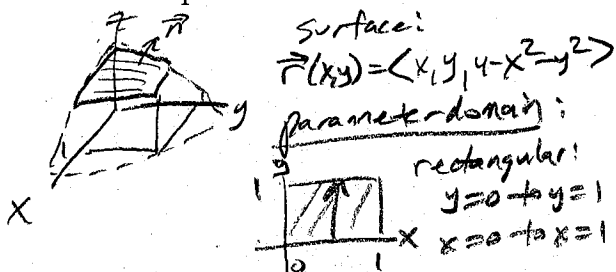 z
n
y
x
surface:
r(x,y)=<x,y,4-x²-y²>
parameter domain:
rectangular:
y=0 to y=1
x=0 to x=1
y
1
x
0 1